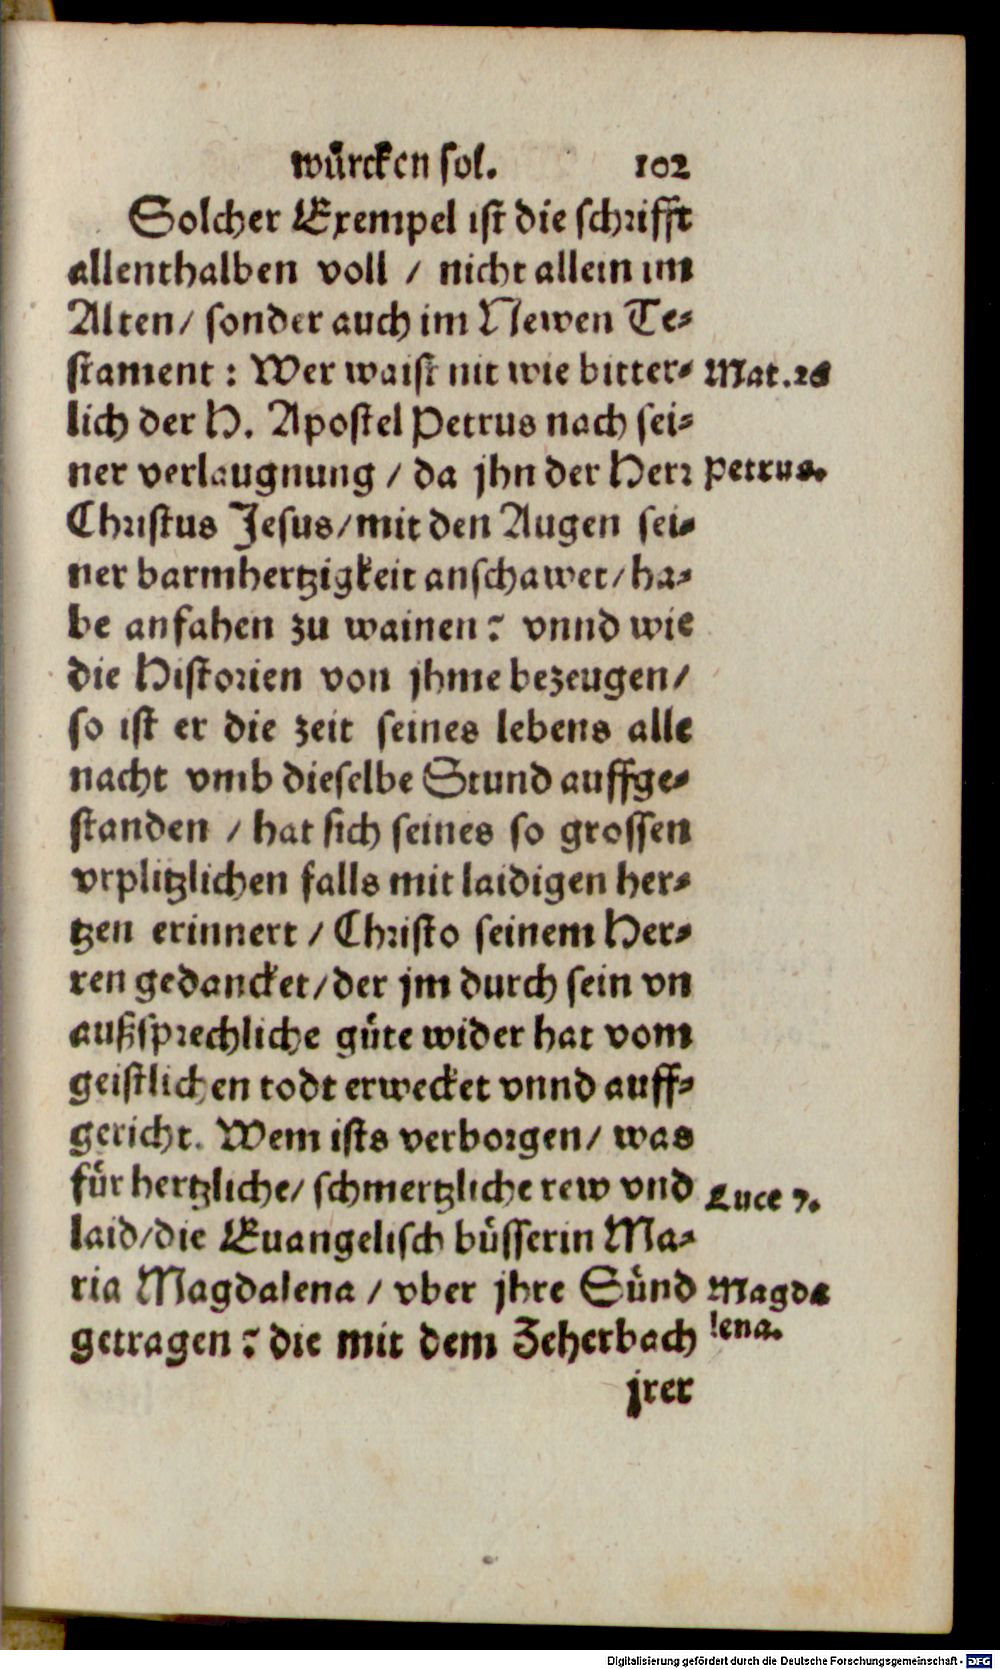 würcken sol. 102
Solcher Exempel ist die schrifft
allenthalben voll / nicht allein im
Alten/ sonder auch im Newen Te-
stament : Wer waist nit wie bitter- Mat.26
lich der H. Apostel Petrus nach sei-
ner verlaugnung / da jhn der Herr Petrus.
Christus Jesus/mit den Augen sei-
ner barmhertzigkeit anschawet/ ha-
be anfahen zu wainen? vnnd wie
die Historien von jhme bezeugen/
so ist er die zeit seines lebens alle
nacht vmb dieselbe Stund auffge-
standen / hat sich seines so grossen
vrplitzlichen falls mit laidigen her-
tzen erinnert / Christo seinem Her-
ren gedancket/der jm durch sein vn
außsprechliche güte wider hat vom
geistlichen todt erwecket vnnd auff-
gericht. Wem ists verborgen/ was
für hertzliche/ schmertzliche rew vnd Luce 7.
laid/die Euangelisch büsserin Ma-
ria Magdalena / vber jhre Sünd Magda
getragen? die mit dem Zeherbach lena.
jrer
Digitalisierung gefördert durch die Deutsche Forschungsgemeinschaft - DFG